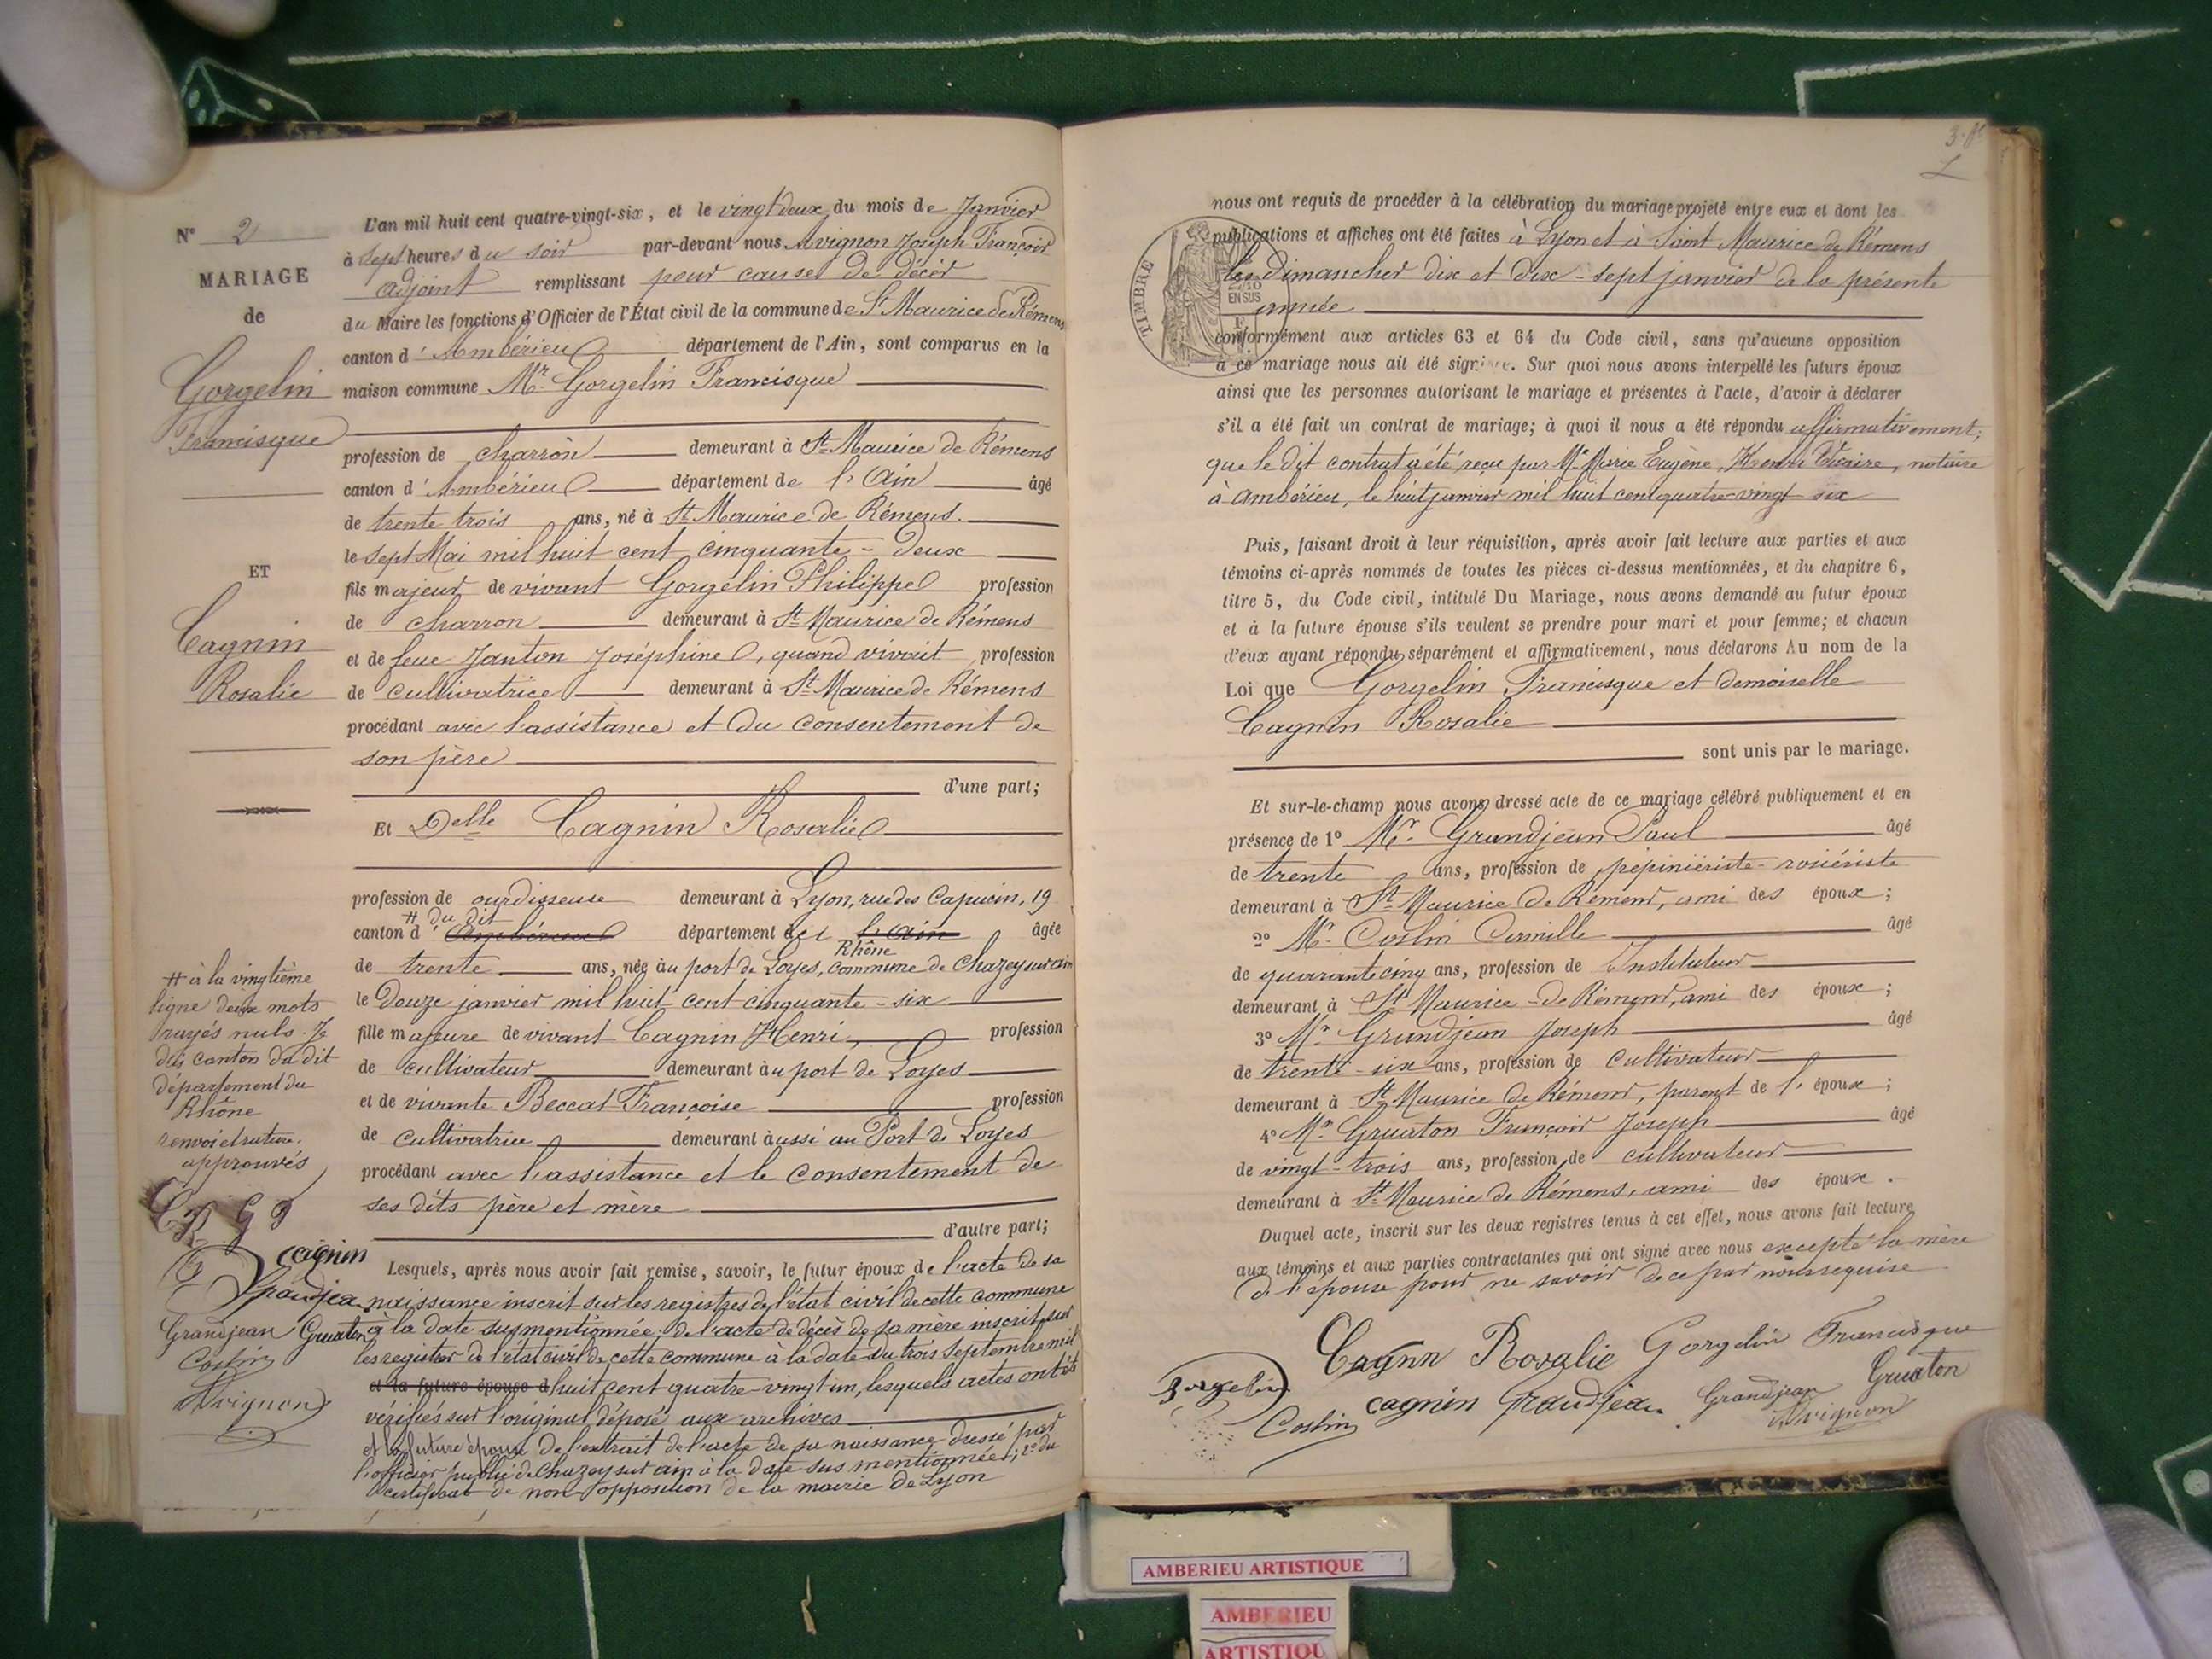 N° 2
MARIAGE
de
Gorgelin
Francisque
ET
Cagnin
Rosalie
# à la vingtième
ligne deux mots
rayés nuls. Je
dis canton du dit
département du
Rhône
renvoi et rature
approuvés
C R G P
G cagnin
Grandjean
Grandjean Gruaton
Costin
Avignon
L'an mil huit cent quatre-vingt-six, et le vingt deux du mois de Janvier
à sept heures du soir par-devant nous Avignon Joseph François
adjoint remplissant pour causes de décès
du Maire les fonctions d'Officier de l'État civil de la commune de St Maurice de Rémens
canton d'Ambérieu département de l'Ain, sont comparus en la
maison commune Mr Gorgelin Francisque
profession de charron demeurant à St Maurice de Rémens
canton d'Ambérieu département de l'Ain âgé
de trente trois ans, né à St Maurice de Rémens.
le sept Mai mil huit cent cinquante-deux
fils majeur de vivant Gorgelin Philippe profession
de charron demeurant à St Maurice de Rémens
et de feue Janton Joséphine, quand vivait profession
de cultivatrice demeurant à St Maurice de Rémens
procédant avec l'assistance et du consentement de
son père
d'une part;
Et Delle Cagnin Rosalie
profession de ourdisseuse demeurant à Lyon, rue des Capucin, 19
# du dit
canton d'Ambérieu département de l'Ain âgée
Rhône
de trente ans, née au port de Loyes, commune de Chazey sur ain
le Douze janvier mil huit cent cinquante-six
fille majeure de vivant Cagnin Henri, profession
de cultivateur demeurant au port de Loyes
et de vivante Beccat Françoise profession
de cultivatrice demeurant aussi au Port de Loyes
procédant avec l'assistance et le consentement de
ses dits père et mère
d'autre part;
Lesquels, après nous avoir fait remise, savoir, le futur époux de l'acte de sa
naissance inscrit sur les registres de l'état civil de cette commune
à la date susmentionnée, de l'acte de décès de sa mère inscrit sur
les registres de l'état civil de cette commune à la date du trois Septembre mil
et la future épouse d huit cent quatre-vingt un, lesquels actes ont été
vérifiés sur l'original déposé aux archives
et la future épouse de l'extrait de l'acte de sa naissance dressé par
l'officier public de Chazey sur ain à la date sus mentionnée; 2° du
certificat de non opposition de la mairie de Lyon
nous ont requis de procéder à la célébration du mariage projeté entre eux et dont les
publications et affiches ont été faites à Lyon et à Saint Maurice de Rémens
les Dimanches dix et dix-sept janvier de la présente
année
TIMBRE
EN SUS
conformément aux articles 63 et 64 du Code civil, sans qu'aucune opposition
à ce mariage nous ait été signifiée. Sur quoi nous avons interpellé les futurs époux
ainsi que les personnes autorisant le mariage et présentes à l'acte, d'avoir à déclarer
s'il a été fait un contrat de mariage; à quoi il nous a été répondu affirmativement,
que le dit contrat a été reçu par Me Marie Eugène, Henri Vicaire, notaire
à Ambérieu, le huit janvier mil huit cent quatre-vingt six
Puis, faisant droit à leur réquisition, après avoir fait lecture aux parties et aux
témoins ci-après nommés de toutes les pièces ci-dessus mentionnées, et du chapitre 6,
titre 5, du Code civil, intitulé Du Mariage, nous avons demandé au futur époux
et à la future épouse s'ils veulent se prendre pour mari et pour femme; et chacun
d'eux ayant répondu séparément et affirmativement, nous déclarons Au nom de la
Loi que Gorgelin Francisque et demoiselle
Cagnin Rosalie
sont unis par le mariage.
Et sur-le-champ nous avons dressé acte de ce mariage célébré publiquement et en
présence de 1° Mr Grandjean Paul âgé
de trente ans, profession de pépiniériste-rosiériste
demeurant à St Maurice de Rémens, ami des époux;
2° Mr Costin Camille âgé
de quarante cinq ans, profession de Instituteur
demeurant à St Maurice-de Rémens, ami des époux;
3° Mr Grandjean Joseph âgé
de trente-six ans, profession de cultivateur
demeurant à St Maurice de Rémens, parent de l'époux;
4° Mr Gruaton François Joseph âgé
de vingt-trois ans, profession de cultivateur
demeurant à St Maurice de Rémens, ami des époux.
Duquel acte, inscrit sur les deux registres tenus à cet effet, nous avons fait lecture
aux témoins et aux parties contractantes qui ont signé avec nous excepté la mère
de l'épouse pour ne savoir de ce par nous requise
Cagnn Rosalie Gorgelin Francisque
Gorgelin cagnin Grandjean Grandjean Gruaton
Costin Avignon
AMBERIEU ARTISTIQUE
AMBERIEU
ARTISTIQU